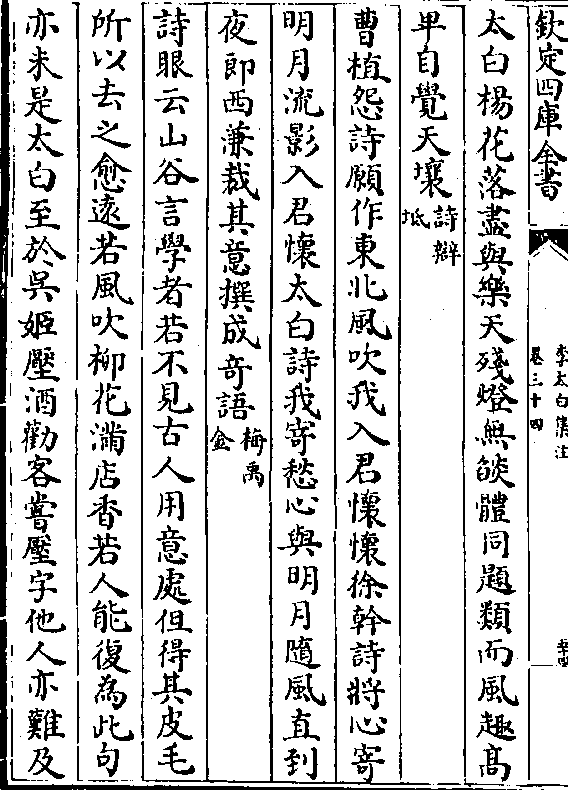 欽定四庫全書
李太白集注
卷三十四
太白楊花落盡與樂天殘燈無燄體同題類而風趣髙
卑自覺天壤詩辯坻
曹植怨詩願作東北風吹我入君懷懷徐幹詩將心寄
明月流影入君懷太白詩我寄愁心與明月隨風直到
夜郎西兼裁其意撰成竒語梅禹金
詩眼云山谷言學者若不見古人用意處但得其皮毛
所以去之愈遠若風吹柳花滿店香若人能復為此句
亦未是太白至於吳姬壓酒勸客嘗壓字他人亦難及